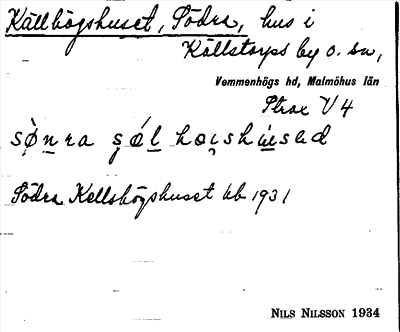 Källhögshuset, Södra, hus i
Källstorps by o. sn,
Vemmenhögs hd, Malmöhus län
V 4
Södra Kellshögshuset kb 1931
NILS NILSSON 1934